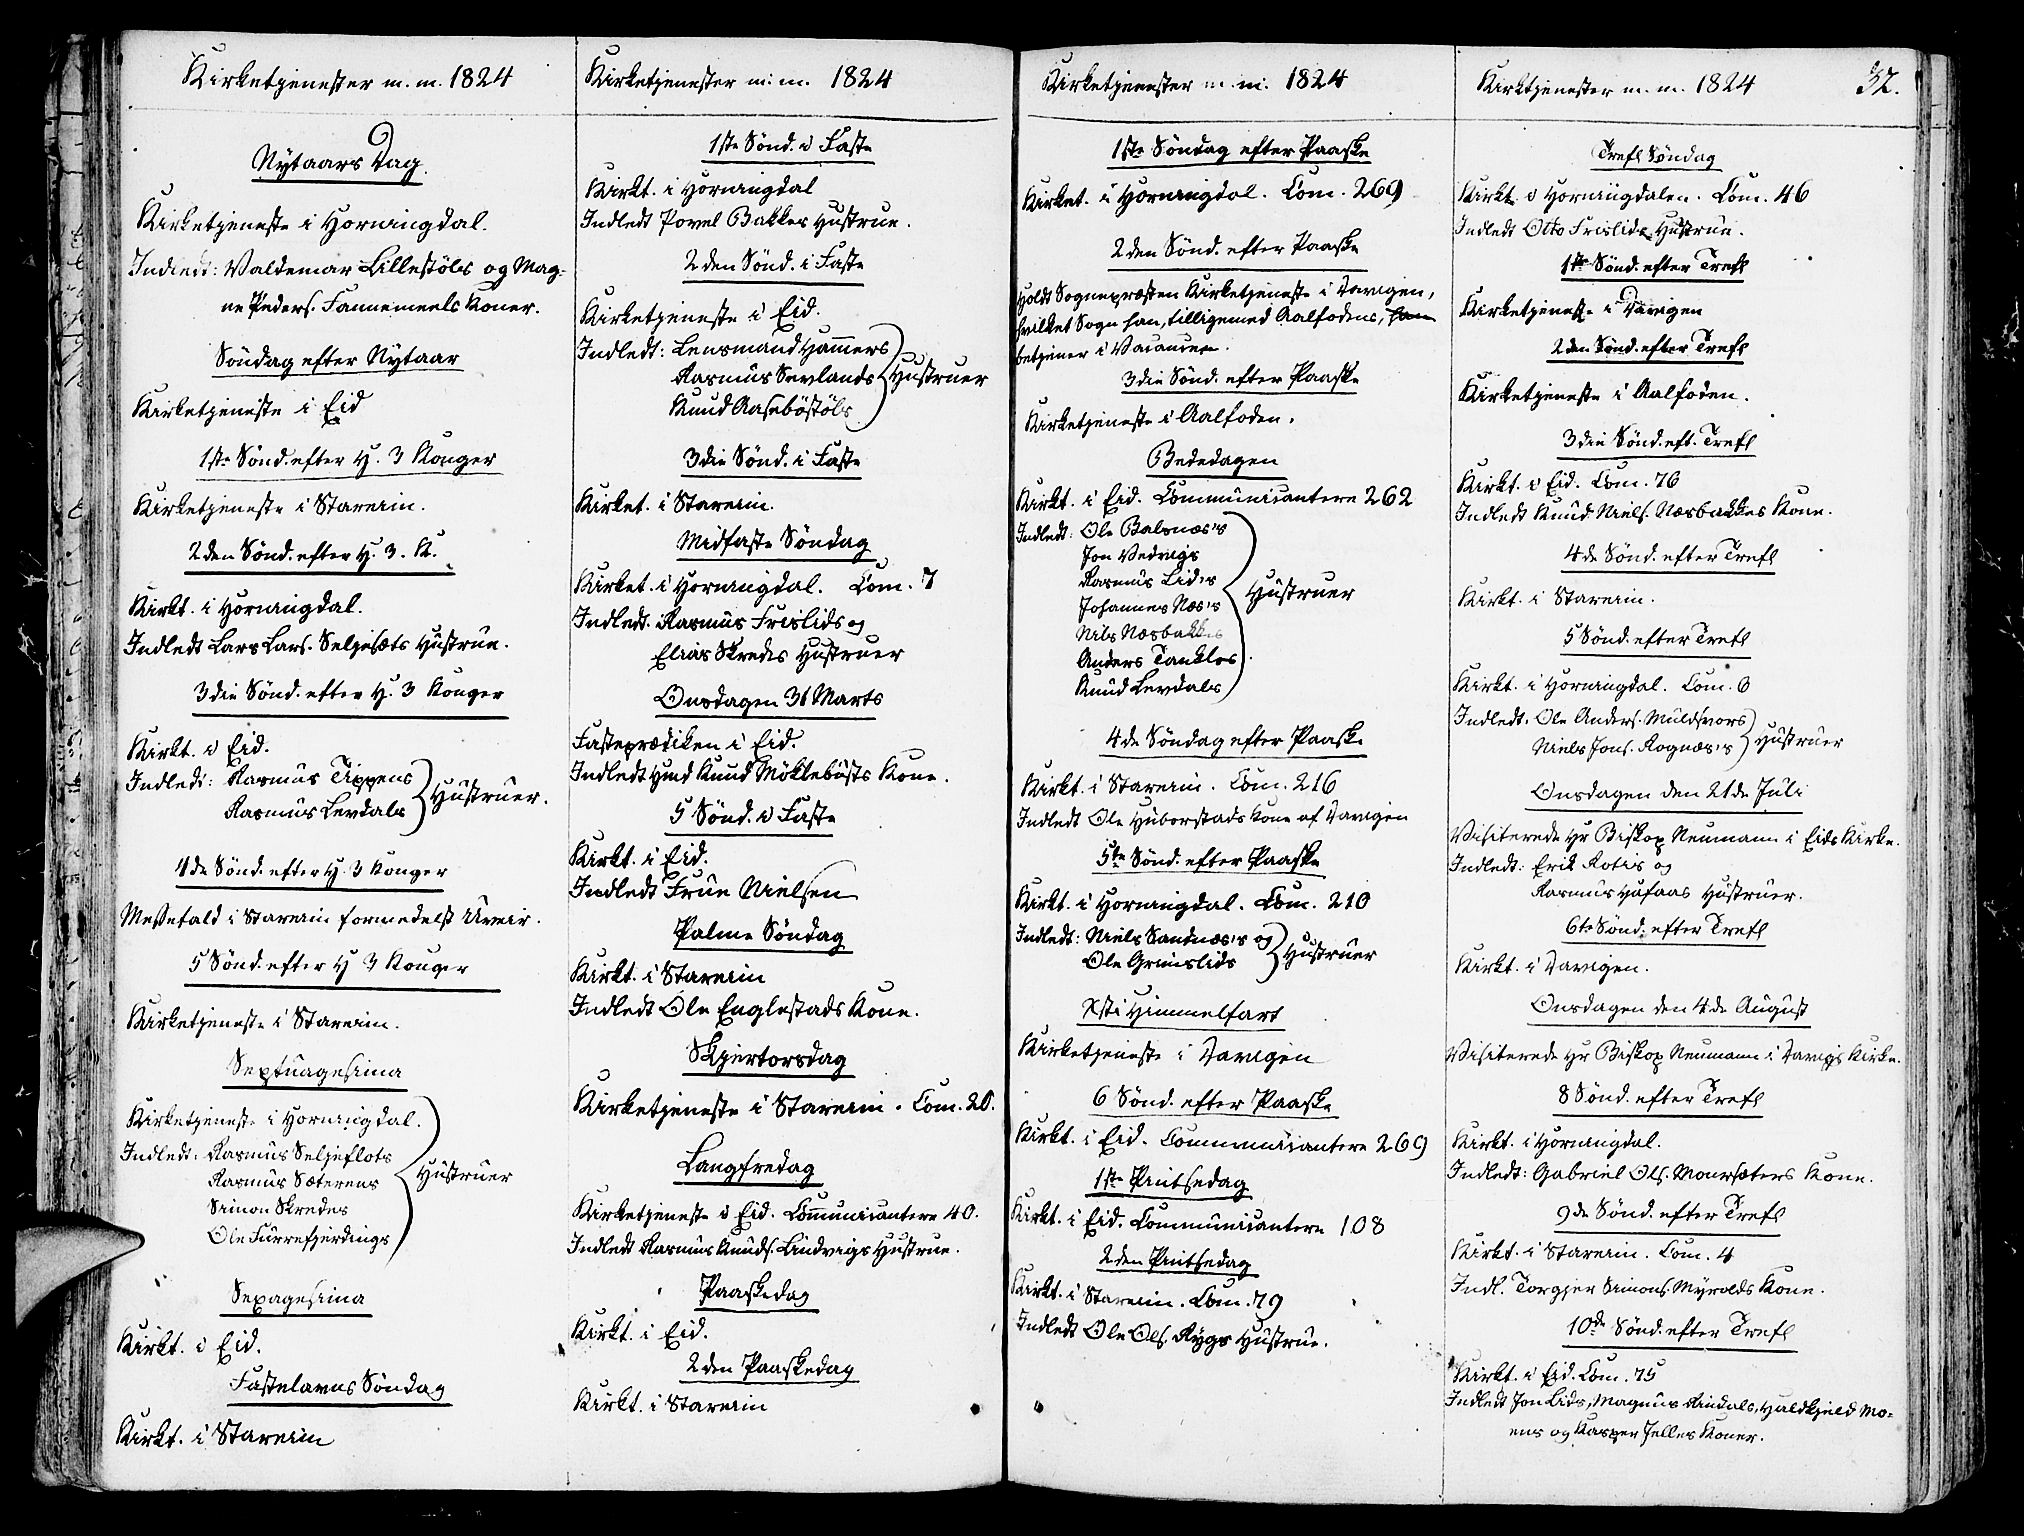 Kirketjenester m. m. 1824
Nytaars Dag.
Kirketjeneste i Horningdal.
Indledt: Valdemar Lillestöls og Mag-
ne Peders. Fannemeels Koner.
Söndag efter Nytaar
Kirketjeneste i Eid
1ste Sönd. efter H. 3 Konger
Kirketjeneste i Starein.
2den Sönd. efter H. 3. K.
Kirkt. i Horningdal.
Indledt Lars Lars. Seljesæts Hustrue.
3die Sönd. efter H. 3 Konger
Kirkt. i Eid.
Indledt: Rasmus Tippens
Rasmus Levdals } Hustruer.
4de Sönd. efter H. 3 Konger
Messefald i Starein formedelst Uveir.
5 Sönd. efter H 3 Konger
Kirketjeneste i Starein.
Septuagesima
Kirketjeneste i Horningdal.
Indledt: Rasmus Seljeflots
Rasmus Sæterens } Hustruer
Simon Skredes
Ole Furrefjerdings
Sexagesima
Kirkt. i Eid.
Fastelavns Söndag
Kirkt. i Starein
Kirketjenester m: m. 1824
1ste Sönd. i Faste
Kirkt. i Horningdal
Indledt Povel Bakkes Hustrue.
2den Sönd. i Faste
Kirketjeneste i Eid.
Indledt: Lensmand Hammers
Rasmus Sevlands } Hustruer
Knud Aaseböstöls
3die Sönd. i Faste
Kirket. i Starein.
Midfaste Söndag
Kirket. i Horningdal. Com. 7
Indledt. Rasmus Frislids og
Elias Skredes Hustruer
Onsdagen 31 Marts
Fasteprædiken i Eid.
Indledt Knud Möklebusts Kone.
5 Sönd. i Faste
Kirkt. i Eid.
Indledt Frue Nielsen
Palme Söndag
Kirkt. i Starein
Indledt Ole Englestads Kone.
Skjertorsdag
Kirketjeneste i Starein. Com. 20.
Langfredag
Kirketjeneste i Eid. Communicantere 40.
Indledt Rasmus Knuds. Lindvigs Hustrue.
Paaskedag
Kirkt. i Eid.
2den Paaskedag
Kirkt. i Starein
Kirketjenester m. m. 1824
1ste Söndag efter Paaske
Kirket. i Horningdal. Com. 269
2den Sönd. efter Paaske
Holdt Sognepræsten Kirketjeneste i Davigen,
hvilket Sogn han, tilligemed Aalfodens, han
betjener i Vacancen.
3die Sönd. efter Paaske
Kirketjeneste i Aalfoden.
Bededagen
Kirkt. i Eid. Communicantere 262
Indledt: Ole Balsnæs's
Jon Vedvigs
Rasmus Lids
Johannes Næs's } Hustruer
Nils Næsbakkes
Anders Tanklos
Knud Levdals
4de Söndag efter Paaske
Kirkt. i Starein. Com. 216
Indledt Ole Huborstads Kone af Davigen
5te Sönd. efter Paaske
Kirkt. i Horningdal. Com. 210
Indledt: Niels Sandnæs's og
Ole Grimslids } Hustruer
Xsti Himmelfart
Kirketjeneste i Davigen
6 Sönd. efter Paaske
Kirkt. i Eid. Communicantere 269
1ste Pintsedag
Kirkt. i Eid. Communicantere 108
2den Pintsedag
Kirkt. i Starein. Com. 79
Indledt Ole Ols. Rygs Hustrue.
Kirktjenester m. m. 1824 32.
Tref. Söndag
Kirkt. i Horningdalen. Com. 46
Indledt Otto Frislids Hustrue.
1ste Sönd. efter Tref.
Kirketjeneste i Davigen
2den Sönd. efter Tref.
Kirketjeneste i Aalfoden.
3die Sönd. eft. Tref.
Kirkt. i Eid. Com. 76
Indledt Knud Niels. Næsbakkes Kone.
4de Sönd. efter Tref.
Kirkt. i Starein.
5 Sönd. efter Tref.
Kirkt. i Horningdal. Com. 6
Indledt. Ole Anders. Muldsvors
Niels Jons. Rognæs's } Hustruer
Onsdagen den 21de Juli
Visiterede Hr Biskop Neumann i Eids Kirke.
Indledt: Erik Rotis og
Rasmus Hafaas Hustruer.
6te Sönd. efter Tref.
Kirkt. i Davigen.
Onsdagen den 4de August
Visiterede Hr Biskop Neumann i Davigs Kirke.
8 Sönd. efter Tref.
Kirkt. i Horningdal.
Indledt: Gabriel Ols. Monsæters Kone.
9de Sönd. efter Tref.
Kirkt. i Starein. Com. 4
Indl. Torgjer Simons. Myrolds Kone.
10de Sönd. efter Tref.
Kirkt. i Eid. Com. 75
Indledt Jon Lids, Magnus Rindals, Haldkjeld Mo-
ens og Kasper Jelles Koner.